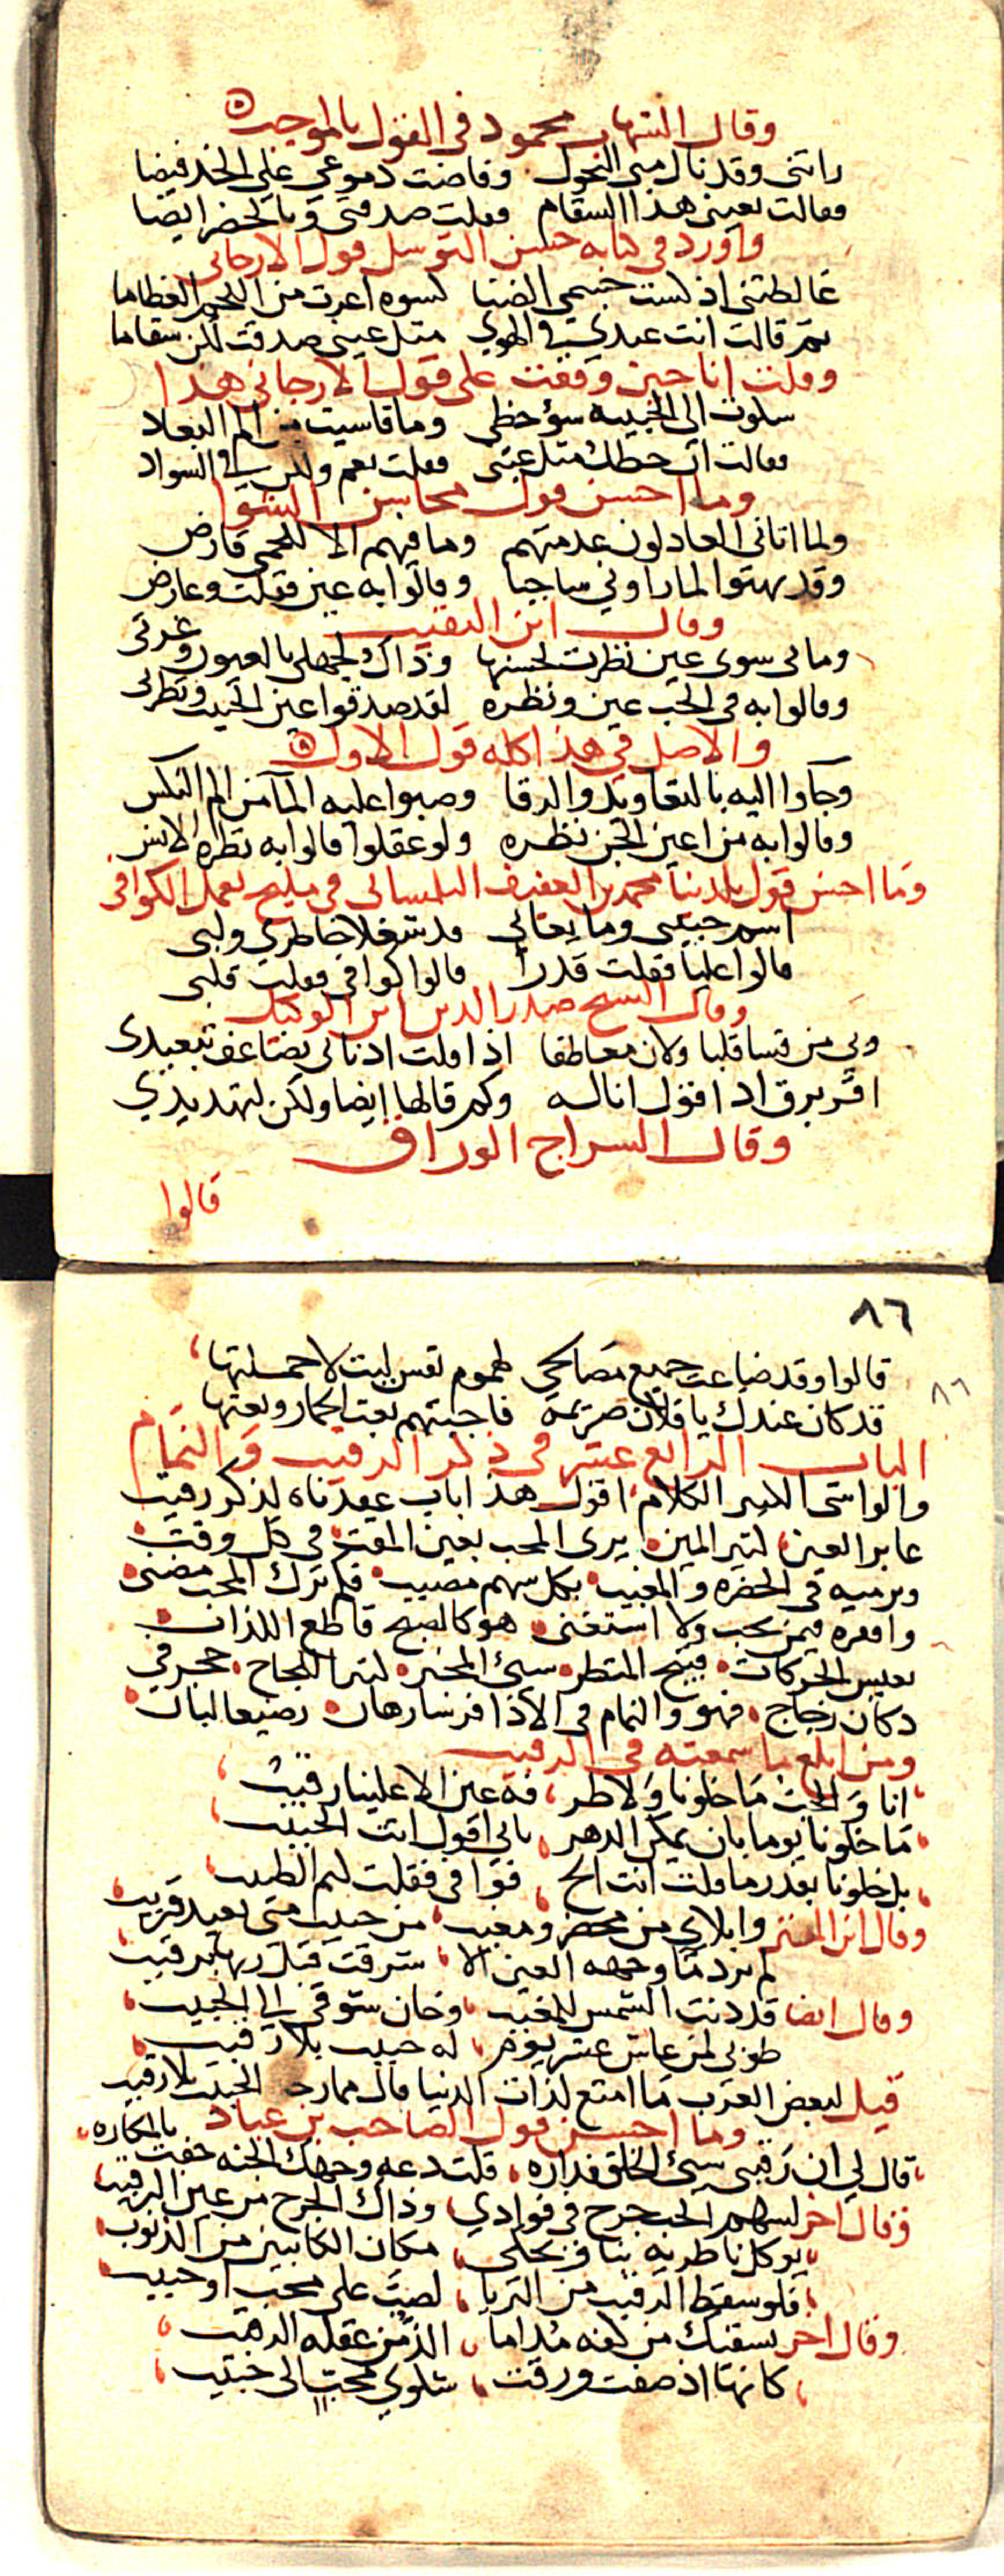 وقال الشهاب محمود في القول بالموجب
راتني وقد نال مني النحول وفاضت دموعي على الخد فيضا
فقالت بعيني هذا السقام فقلت صدقتي وبالخصر ايضا
واورد في كتابه حسن التوسل قول الارجاني
غالطتني اذ كست جسمي الضنا كسوه اعرت من اللحم العظاما
ثم قالت انت عندي في الهوي مثل عيني صدقت لكن سقاما
وقلت انا حين وقفت على قول الارجاني هذا
شكوت الى الحبيبه سؤ حظي وما قاسيت من الم البعاد
فقالت ان حظك مثل عيني فقلت نعم ولكن في السواد
وما احسن قول محاسن الشوا
ولما اتاني العادلون عدمتهم وما فيهم الا للحمي قارض
وقد بهتوا لما راوني ساحبا وقالوا به عين فقلت وعارض
وقال ابن النقيب
وما بي سوى عين نظرت لحسنها وذاك لجهلي بالعيون وغرتي
وقالوا به في الحب عين ونظره لقد صدقوا عين الحبيب ونظرتي
والاصل في هذا كله قول الاول
وجاوا اليه بالتعاويد والرقا وصبوا عليه الما من الم النكس
وقالوا به من اعين الجن نظره ولو عقلوا قالوا به نظرة الانس
وما احسن قول بلدينا محمد بن العفيف التلمساني في مليح يعمل الكوافي
اسم حبيبي وما يعاني قد شغلا خاطري ولبي
قالوا عليا فقلت قدرا قالوا كوافي فقلت قلبي
وقال الشيخ صدر الدين ابن الوكيل
وبي من قسا قلبا ولان معاطفا اذا قلت ادناني يضاعف تبعيدي
اقر برق اذ اقول انا له وكم قالها ايضا ولكن لتهديدي
وقال السراج الوراق
قالوا
٨٦
قالوا وقد ضاعت جميع مصالحي لهموم نفس ليت لا حملتها
قد كان عندك يا فلان صريمة فاجبتهم بعت الحمار وبعتها
الباب الرابع عشر في ذكر الرقيب والنمام
والواشي الكثير الكلام اقول هذا باب عقدناه لذكر رقيب
عاير العين كثير المين يرى المحب بعين المقت في كل وقت
ويرميه في الحضره والمغيب بكل سهم مصيب فكم ترك المحب مضنى
وافقره فيمن يحب ولا استغنى هو كالصبح قاطع اللذات
نعيس الحركات قبيح المنظر سيئ المخبر كثير اللجاج حجر في
دكان زجاج فهو والنمام في الاذا فرسا رهان رضيعا لبان
ومن ابلغ ما سمعته في الرقيب
انا والحب ما خلونا ولا طرفة عين الا علينا رقيب
ما خلونا يوما بان يمكن الدهر باني اقول انت الحبيب
بل خلونا بقدر ما قلت انت الح فوافى فقلت لهم الطبيب
وقال ابن المعتز وابلائي من محضر ومغيب من حبيب مني بعيد قريب
لم ترد ما وجهه العين الا شرقت قبل ريها برقيب
وقال ايضا قد دنت الشمس للمغيب وحان شوقي الى الحبيب
طوبى لمن عاش عشر يوم له حبيب بلا رقيب
قيل لبعض العرب ما امتع لذات الدنيا قال ممازحة الحبيب بلا رقيب
وما احسن قول الصاحب بن عباد
قال لي ان رقيبي سيئ الخلق فداره قلت دعه وجهك الجنه حفت بالمكاره
وقال اخر لسهم الحب جرح في فوادي وذاك الجرح من عين الرقيب
يوكل ناظريه بنا ويحكي مكان الكاتبين من الذنوب
فلو سقط الرقيب من الثريا لصب على محب او حبيب
وقال اخر يسقيك من كفه مداما الذ من غفلة الرقيب
كانها اذ صفت ورقت شكوي محب الى حبيب